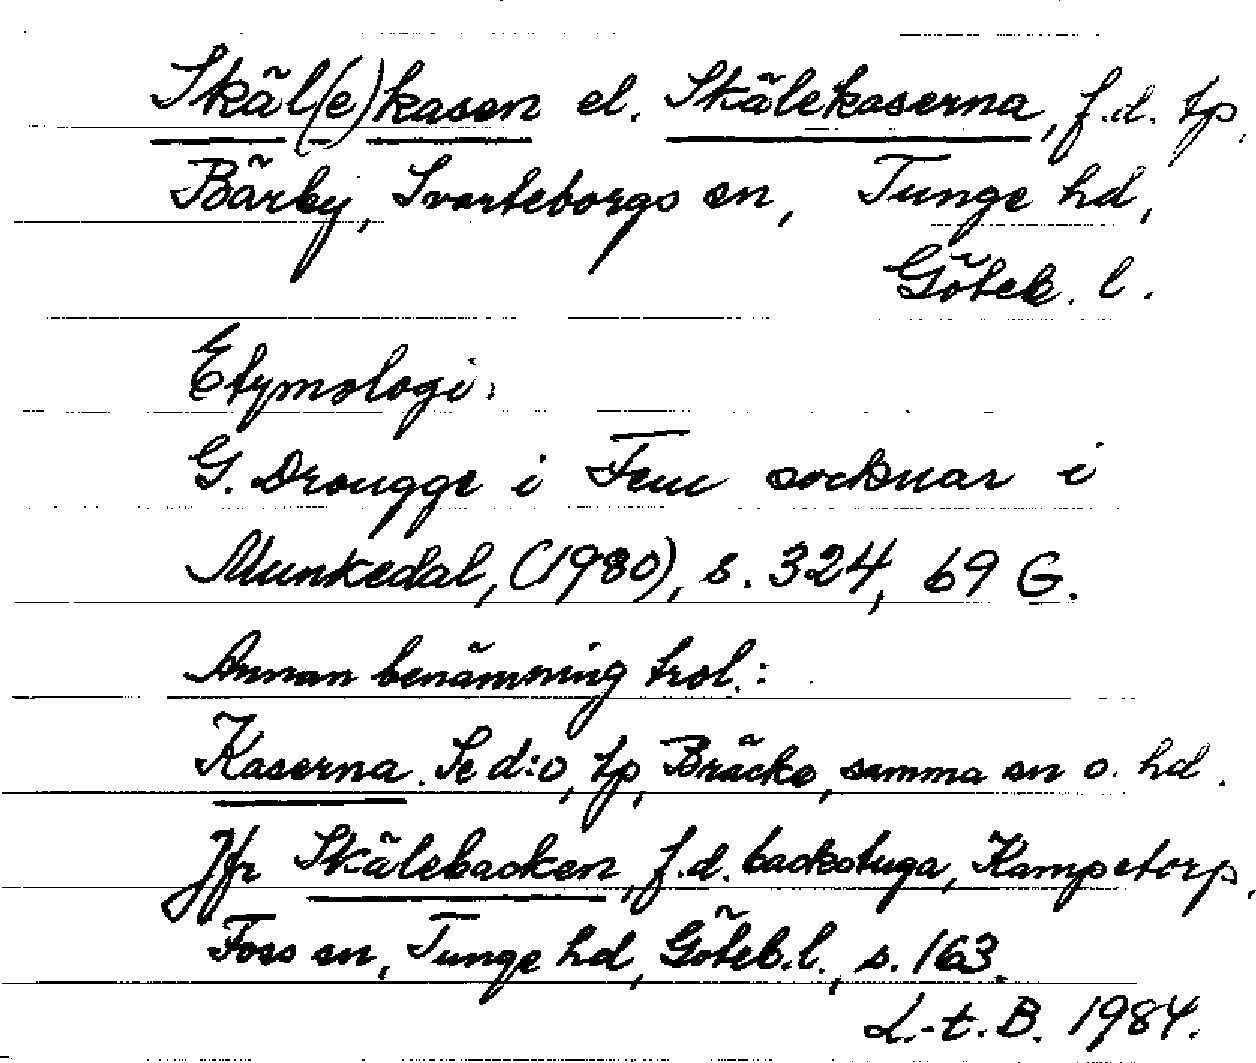 Skäl(e)kasen el. Skälekaserna, f.d. tp,
Bärby, Svarteborgs sn, Tunge hd,
Göteb. l.
Etymologi:
G. Drougge i Fem socknar i
Munkedal, (1980), s. 324, 69 G.
Annan benämning trol.:
Kaserna. Se d:o, tp, Bräcke, samma sn o. hd.
Jfr Skälebacken, f.d. backstuga, Kampetorp,
Foss sn, Tunge hd, Göteb.l., s. 163.
L.-t. B. 1984.